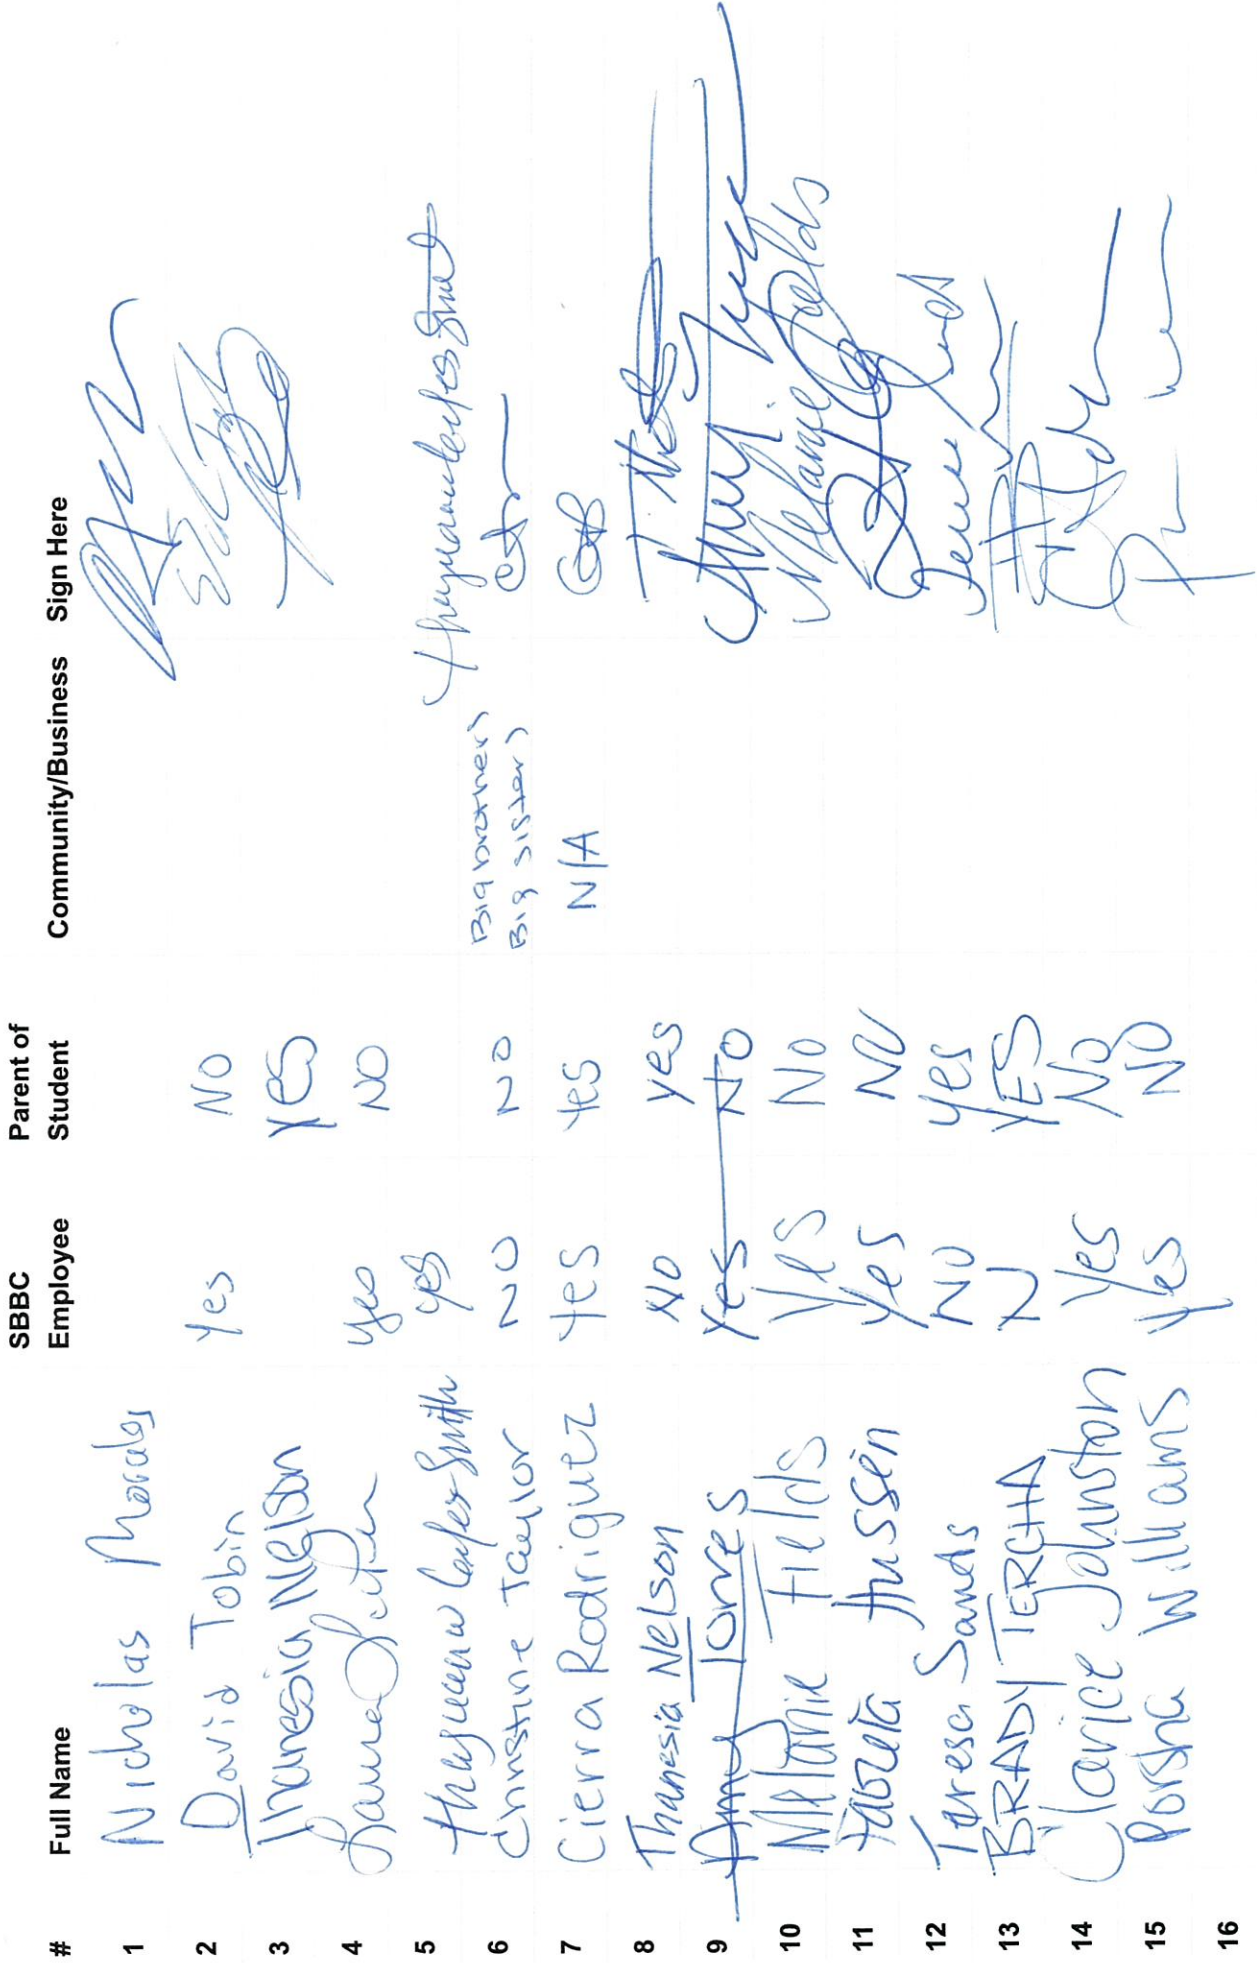 # Full Name SBBC Employee Parent of Student Community/Business Sign Here
1 Nicholas Morales
2 David Tobin Yes No
3 Thanesia Nelson Yes
4 yes NO
5 yes
6 Christine Taylor NO NO Big brothers Big sisters
7 Cierra Rodriguez Yes Yes N/A
8 Thanesia Nelson No Yes
9 Amy Torres Yes No
10 Melanie Fields Yes No Melanie Fields
11 Hussen Yes No
12 Teresa Sands NO Yes
13 BRADY TERCHA N YES
14 Clarice Johnston Yes No
15 Porsha Williams Yes NO
16